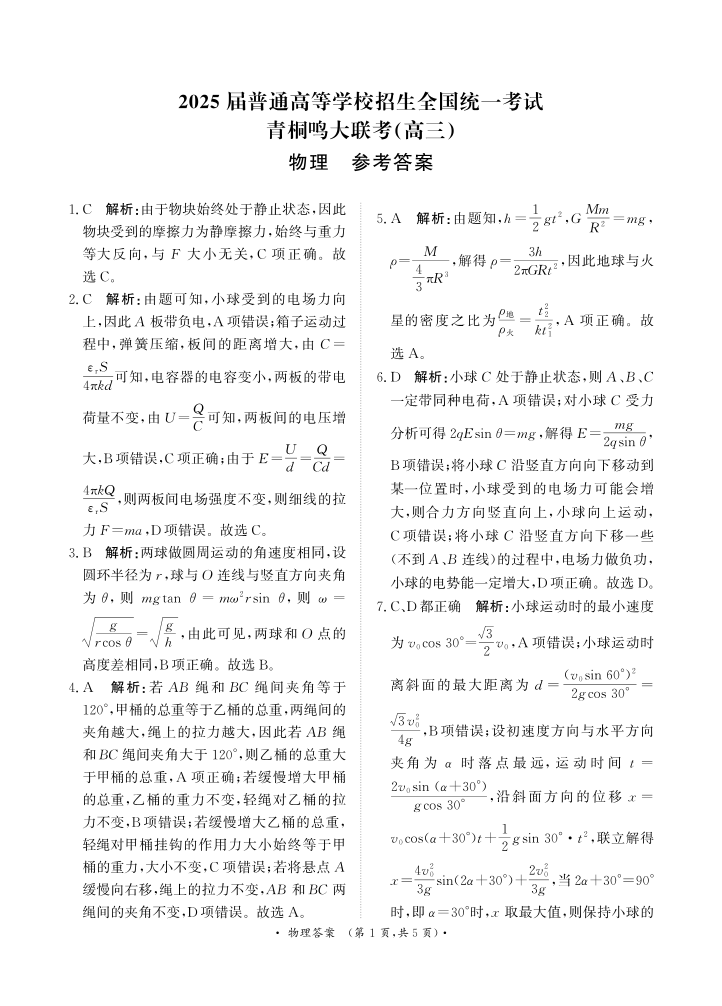 2025 届普通高等学校招生全国统一考试
青桐鸣大联考(高三)
物理 参考答案
1. C 解析:由于物块始终处于静止状态,因此
物块受到的摩擦力为静摩擦力,始终与重力
等大反向,与 F 大小无关,C 项正确。故
选 C。
2. C 解析:由题可知,小球受到的电场力向
上,因此 A 板带负电,A 项错误;箱子运动过
程中,弹簧压缩,板间的距离增大,由 C=
εᵣS/4πkd 可知,电容器的电容变小,两板的带电
荷量不变,由 U=Q/C 可知,两板间的电压增
大,B 项错误,C 项正确;由于 E=U/d=Q/Cd=
4πkQ/εᵣS,则两板间电场强度不变,则细线的拉
力 F=ma,D 项错误。故选 C。
3. B 解析:两球做圆周运动的角速度相同,设
圆环半径为 r,球与 O 连线与竖直方向夹角
为 θ,则 mgtan θ = mω²rsin θ,则 ω =
√(g/rcos θ)=√(g/h),由此可见,两球和 O 点的
高度差相同,B 项正确。故选 B。
4. A 解析:若 AB 绳和 BC 绳间夹角等于
120°,甲桶的总重等于乙桶的总重,两绳间的
夹角越大,绳上的拉力越大,因此若 AB 绳
和 BC 绳间夹角大于 120°,则乙桶的总重大
于甲桶的总重,A 项正确;若缓慢增大甲桶
的总重,乙桶的重力不变,轻绳对乙桶的拉
力不变,B 项错误;若缓慢增大乙桶的总重,
轻绳对甲桶挂钩的作用力大小始终等于甲
桶的重力,大小不变,C 项错误;若将悬点 A
缓慢向右移,绳上的拉力不变,AB 和 BC 两
绳间的夹角不变,D 项错误。故选 A。
5. A 解析:由题知,h=1/2 gt²,G Mm/R²=mg,
ρ=M/(4/3 πR³),解得 ρ=3h/2πGRt²,因此地球与火
星的密度之比为 ρ地/ρ火=t₂²/kt₁²,A 项正确。故
选 A。
6. D 解析:小球 C 处于静止状态,则 A、B、C
一定带同种电荷,A 项错误;对小球 C 受力
分析可得 2qEsin θ=mg,解得 E=mg/2qsin θ,
B 项错误;将小球 C 沿竖直方向向下移动到
某一位置时,小球受到的电场力可能会增
大,则合力方向竖直向上,小球向上运动,
C 项错误;将小球 C 沿竖直方向下移一些
(不到 A、B 连线)的过程中,电场力做负功,
小球的电势能一定增大,D 项正确。故选 D。
7. C、D 都正确 解析:小球运动时的最小速度
为 v₀cos 30°=√3/2 v₀,A 项错误;小球运动时
离斜面的最大距离为 d=(v₀sin 60°)²/2gcos 30°=
√3v₀²/4g,B 项错误;设初速度方向与水平方向
夹角为 α 时落点最远,运动时间 t=
2v₀sin (α+30°)/gcos 30°,沿斜面方向的位移 x=
v₀cos(α+30°)t+1/2 gsin 30°·t²,联立解得
x=4v₀²/3g sin(2α+30°)+2v₀²/3g,当 2α+30°=90°
时,即 α=30°时,x 取最大值,则保持小球的
· 物理答案 (第 1 页,共 5 页) ·